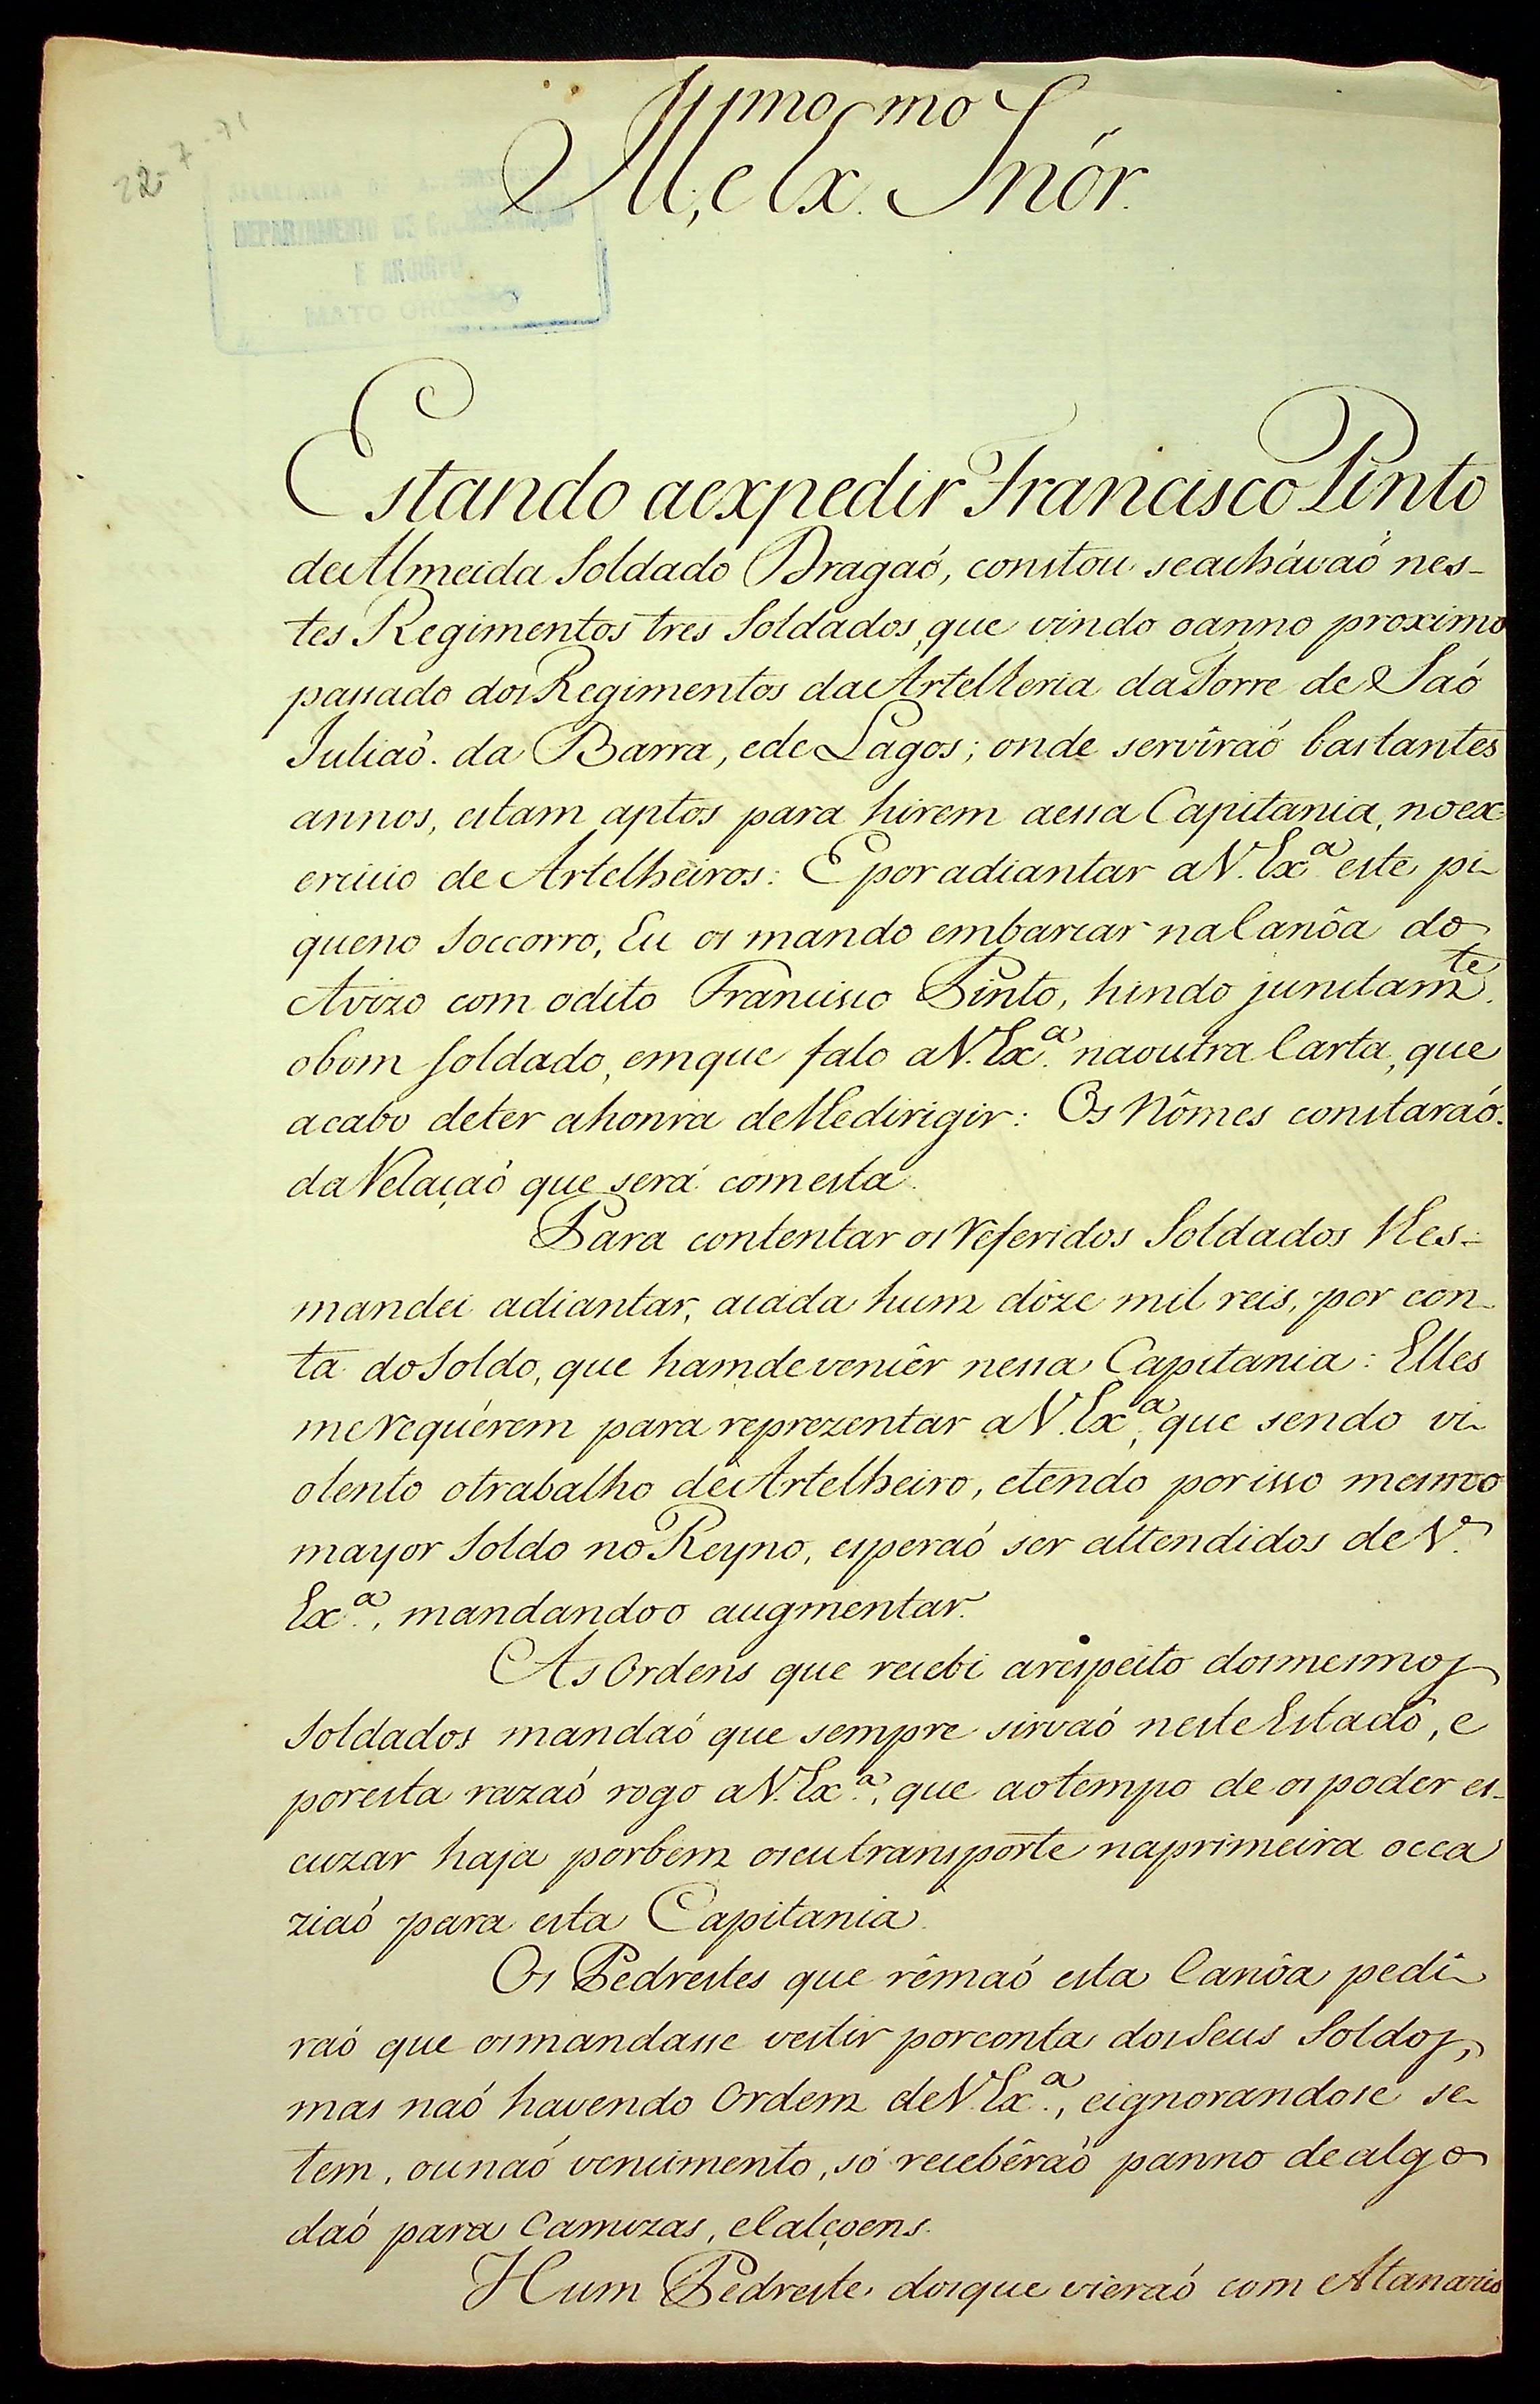 Ill.mo e Ex.mo Snõr.
22-7-71
DEPARTAMENTO DE DOCUMENTAÇÃO
E ARQUIVO
MATO GROSSO
Estando aexpedir Francisco Pinto
de Almeida Soldado Dragaó, constou seachávaó nes-
tes Regimentos tres Soldados, que vindo oanno proximo
passado dos Regimentos da Artelleria da Torre de Saó
Juliaó da Barra, ede Lagos; onde servîraó bastantes
annos, estam aptos para hirem aessa Capitania, noex-
ercicio de Artelheiros: E por adiantar a V. Ex.ª este pi-
queno Soccorro, Eu os mando embarcar na Canôa do
Avizo com odito Francisco Pinto, hindo junctam.te
obom Soldado, emque falo a V. Ex.ª naoutra Carta, que
acabo deter ahonra de lhe dirigir: Os Nômes constaráó
da Relaçaó que será com esta.
Para contentar os Referidos Soldados lhes-
mandei adiantar, acada hum dôze mil reis, por con-
ta do Soldo, que hamde vencêr nessa Capitania: Elles
me Requérem para reprezentar a V. Ex.ª, que sendo vi-
olento otrabalho de Artelheiro, etendo porisso mesmo
mayor Soldo no Reyno, esperaó ser attendidos de V.
Ex.ª, mandandoo augmentar.
As Ordens que recebi arespeito dosmesmos
Soldados mandaó que sempre sirvaó neste Estado, e
poresta razaó rogo a V. Ex.ª, que aotempo de os poder es-
cuzar haja porbem oseu transporte naprimeira occa
ziaó para esta Capitania.
Os Pedrestes que rêmaó esta Canôa pedî-
raó que osmandasse vestir porconta dos Seus Soldos,
mas naó havendo Ordem de V. Ex.ª, eignorandose se-
tem, ounaó vencimento, só recebêraó panno de algo
daó para Camizas, e Calçoens.
Hum Pedreste, dosque vieraó com Atanazio